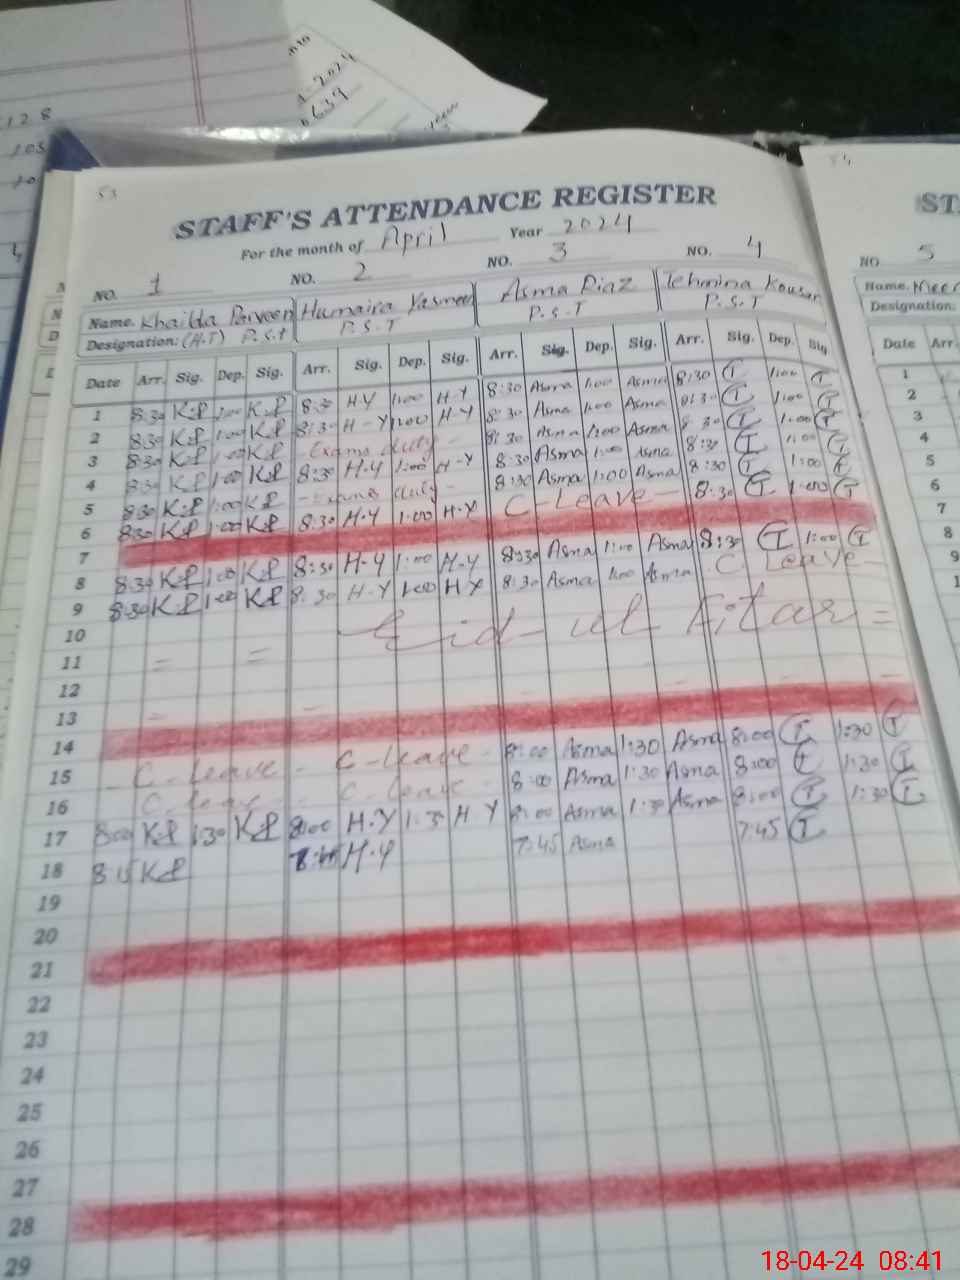 128
2024
53
STAFF'S ATTENDANCE REGISTER
For the month of April Year 2024
NO. 1 NO. 2 NO. 3 NO. 4
Name. Khalida Parveen Humaira Yasmeen Asma Riaz Tehmina Kousar
Designation: (H.T) P.S.t P.S.T P.S.T P.S.T
Date Arr. Sig. Dep. Sig. Arr. Sig. Dep. Sig. Arr. Sig. Dep. Sig. Arr. Sig. Dep. Sig
1 8:30 K.P 1:00 K.P 8:30 H-Y 1:00 H-Y 8:30 Asma 1:00 Asma 8:30 T 1:00 T
2 8:30 K.P 1:00 K.P 8:30 H-Y 1:00 H-Y 8:30 Asma 1:00 Asma 8:30 T 1:00 T
3 8:30 K.P 1:00 K.P - Exams duty - 8:30 Asma 1:00 Asma 8:30 T 1:00 T
4 8:30 K.P 1:00 K.P 8:30 H.Y 1:00 H-Y 8:30 Asma 1:00 Asma 8:30 T 1:00 T
5 8:30 K.P 1:00 K.P - Exams duty - 8:30 Asma 1:00 Asma 8:30 T 1:00 T
6 8:30 K.P 1:00 K.P 8:30 H.Y 1:00 H.Y C - Leave - 8:30 T 1:00 T
7
8 8:30 K.P 1:00 K.P 8:30 H-Y 1:00 H-Y 8:30 Asma 1:00 Asma 8:30 T 1:00 T
9 8:30 K.P 1:00 K.P 8:30 H-Y 1:00 H.Y 8:30 Asma 1:00 Asma C Leave -
10 Eid - ul Fitar =
11 = =
12
13
14
15 - C - Leave - C - Leave - 8:00 Asma 1:30 Asma 8:00 T 1:30 T
16 C - Leave - C - Leave - 8:00 Asma 1:30 Asma 8:00 T 1:30 T
17 8:00 K.P 1:30 K.P 8:00 H.Y 1:30 H Y 8:00 Asma 1:30 Asma 8:00 T 1:30 T
18 8:15 K.P H.Y 7:45 Asma 7:45 T
19
20
21
22
23
24
25
26
27
28
29
ST
NO 5
Name.
Designation:
Date Arr.
1
2
3
4
5
6
7
8
9
18-04-24 08:41